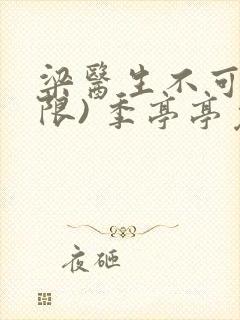 梁醫生不可
限) 季亭亭
夜砸